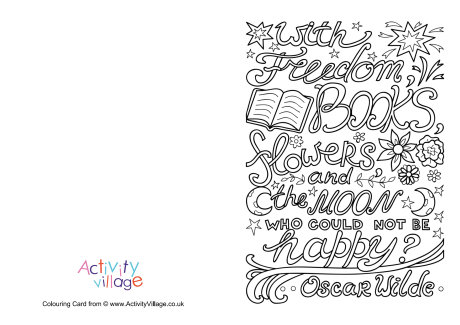 With
Freedom,
BOOKS,
flowers
and
the MOON
WHO COULD NOT BE
happy?
Oscar Wilde
Activity
village
Colouring Card from © www.ActivityVillage.co.uk